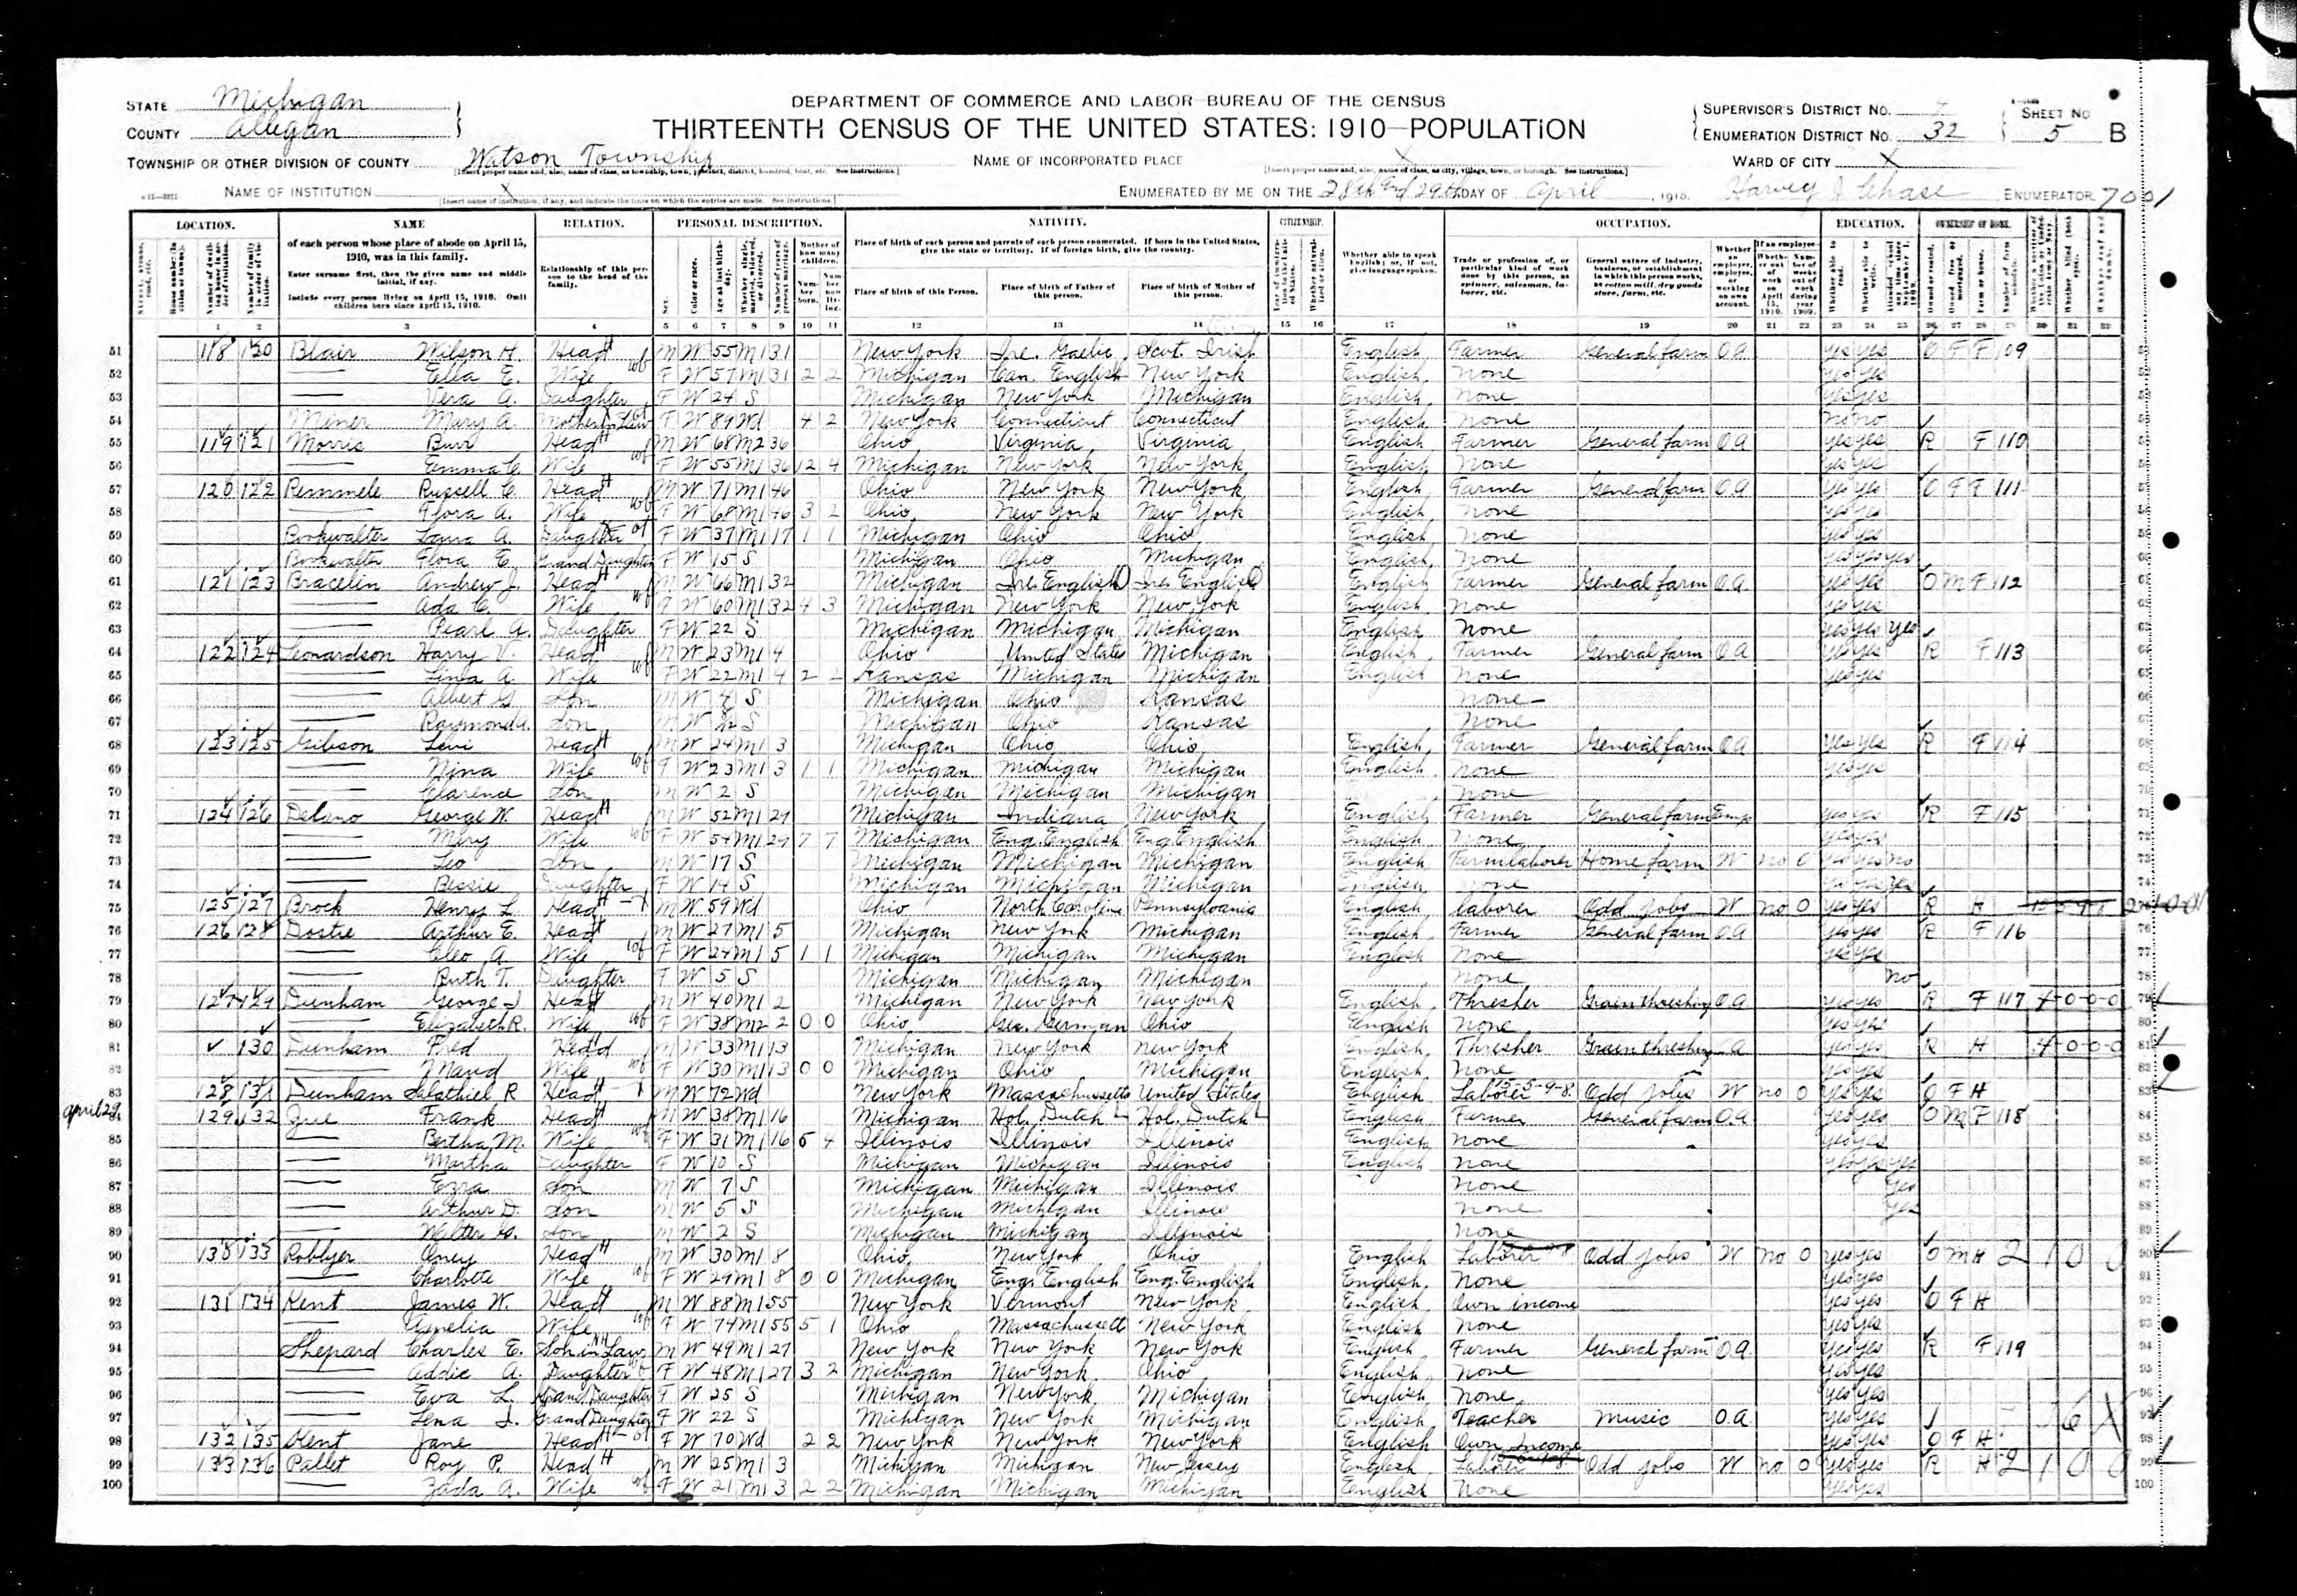 STATE Michigan
COUNTY Allegan
DEPARTMENT OF COMMERCE AND LABOR—BUREAU OF THE CENSUS
THIRTEENTH CENSUS OF THE UNITED STATES: 1910—POPULATION
SUPERVISOR'S DISTRICT NO. 4
ENUMERATION DISTRICT NO. 32
SHEET NO 5 B
TOWNSHIP OR OTHER DIVISION OF COUNTY Watson Township
NAME OF INCORPORATED PLACE X
WARD OF CITY X
NAME OF INSTITUTION X
ENUMERATED BY ME ON THE 28th and 29th DAY OF April, 1910. Harvey J Chase ENUMERATOR 7001
LOCATION. NAME RELATION. PERSONAL DESCRIPTION. NATIVITY. CITIZENSHIP. OCCUPATION. EDUCATION. OWNERSHIP OF HOME.
of each person whose place of abode on April 15, 1910, was in this family.
Enter surname first, then the given name and middle initial, if any.
Include every person living on April 15, 1910. Omit children born since April 15, 1910.
Relationship of this person to the head of the family.
Place of birth of each person and parents of each person enumerated. If born in the United States, give the state or territory. If of foreign birth, give the country.
Place of birth of this Person. Place of birth of Father of this person. Place of birth of Mother of this person.
Whether able to speak English; or, if not, give language spoken.
1 2 3 4 5 6 7 8 9 10 11 12 13 14 15 16 17 18 19 20 21 22 23 24 25 26 27 28 29 30 31 32
51 118 120 Blair Wilson H. Head M W 55 M1 31 New York Ire. Gaelic Scot. Irish English Farmer General farm OA yes yes O F F 109
52 Ella E. Wife F W 57 M1 31 2 2 Michigan Can. English New York English None yes yes
53 Vera A. Daughter F W 24 S Michigan New York Michigan English None yes yes
54 Miner Mary A. Mother in Law F W 89 Wd 4 2 New York Connecticut Connecticut English None no no
55 119 121 Morris Burr Head M W 68 M2 36 Ohio Virginia Virginia English Farmer General farm OA yes yes R F 110
56 Emma C. Wife F W 55 M1 36 12 4 Michigan New York New York English None yes yes
57 120 122 Remmele Russell C. Head M W 71 M1 46 Ohio New York New York English Farmer General farm OA yes yes O F F 111
58 Flora A. Wife F W 68 M1 46 3 2 Ohio New York New York English None yes yes
59 Bookwalter Laura A. Daughter F W 37 M1 17 1 1 Michigan Ohio Ohio English None yes yes
60 Bookwalter Flora E. Grand Daughter F W 15 S Michigan Ohio Michigan English None yes yes yes
61 121 123 Bracelin Andrew J. Head M W 66 M1 32 Michigan Ire. English Ire. English English Farmer General farm OA yes yes O M F 112
62 Ada C. Wife F W 60 M1 32 4 3 Michigan New York New York English None yes yes
63 Pearl A. Daughter F W 22 S Michigan Michigan Michigan English None yes yes yes
64 122 124 Leonardson Harry V. Head M W 23 M1 4 Ohio United States Michigan English Farmer General farm OA yes yes R F 113
65 Lina A. Wife F W 22 M1 4 2 2 Kansas Michigan Michigan English None yes yes
66 Albert G Son M W 4 S Michigan Ohio Kansas None
67 Raymond A. Son M W S Michigan Ohio Kansas None
68 123 125 Gibson Levi Head M W 24 M1 3 Michigan Ohio Ohio English Farmer General farm OA yes yes R F 114
69 Nina Wife F W 23 M1 3 1 1 Michigan Michigan Michigan English None yes yes
70 Clarence Son M W 2 S Michigan Michigan Michigan None
71 124 126 Delano George W. Head M W 52 M1 29 Michigan Indiana New York English Farmer General farm Emp yes yes R F 115
72 Mary Wife F W 54 M1 29 7 7 Michigan Eng. English Eng. English English None yes yes
73 Leo Son M W 17 S Michigan Michigan Michigan English Farm laborer Home farm W no 0 yes yes no
74 Bessie Daughter F W 14 S Michigan Michigan Michigan English None yes yes yes
75 125 127 Brock Henry L Head M W 59 Wd Ohio North Carolina Pennsylvania English laborer Odd jobs W no 0 yes yes R H
76 126 128 Dostie Arthur E. Head M W 27 M1 5 Michigan New York Michigan English Farmer General farm OA yes yes R F 116
77 Cleo A Wife F W 24 M1 5 1 1 Michigan Michigan Michigan English None yes yes
78 Ruth T. Daughter F W 5 S Michigan Michigan Michigan None no
79 127 129 Dunham George I Head M W 40 M1 2 Michigan New York New York English Thresher Grain threshing OA yes yes R F 117 4-0-0-0
80 Elizabeth R. Wife F W 38 M2 2 0 0 Ohio Ger. German Ohio English None yes yes
81 130 Dunham Fred Head M W 33 M1 13 Michigan New York New York English Thresher Grain threshing OA yes yes R H 4-0-0-0
82 Maud Wife F W 30 M1 13 0 0 Michigan Ohio Michigan English None yes yes
83 128 131 Dunham Salathiel R Head M W 72 Wd New York Massachusetts United States English Laborer Odd jobs W no 0 yes yes O F H
april 29
84 129 132 Zue Frank Head M W 38 M1 16 Michigan Hol. Dutch Hol. Dutch English Farmer General farm OA yes yes O M F 118
85 Bertha M. Wife F W 31 M1 16 5 4 Illinois Illinois Illinois English None yes yes
86 Martha Daughter F W 10 S Michigan Michigan Illinois English None yes yes yes
87 Ezra Son M W 7 S Michigan Michigan Illinois None yes
88 Arthur D. Son M W 5 S Michigan Michigan Illinois None yes
89 Walter Son M W 2 S Michigan Michigan Illinois None
90 130 133 Roblyer Oney Head M W 30 M1 8 Ohio New York Ohio English Laborer Odd jobs W no 0 yes yes O M H 2 1 0 0
91 Charlotte Wife F W 29 M1 8 0 0 Michigan Eng. English Eng. English English None yes yes
92 131 134 Kent James W. Head M W 88 M1 55 New York Vermont New York English Own income yes yes O F H
93 Amelia Wife F W 74 M1 55 5 1 Ohio Massachusett New York English None yes yes
94 Shepard Charles E. Son in Law M W 49 M1 27 New York New York New York English Farmer General farm OA yes yes R F 119
95 Addie A. Daughter F W 48 M1 27 3 2 Michigan New York Ohio English None yes yes
96 Eva L. Grand Daughter F W 25 S Michigan New York Michigan English None yes yes
97 Lena I. Grand Daughter F W 22 S Michigan New York Michigan English Teacher Music O.A. yes yes
98 132 135 Kent Jane Head F W 70 Wd 2 2 New York New York New York English Own Income yes yes O F H
99 133 136 Pallet Roy P. Head M W 25 M1 3 Michigan Michigan New Jersey English Laborer Odd jobs W no 0 yes yes R H 2 1 0 0
100 Zada A. Wife F W 21 M1 3 2 2 Michigan Michigan Michigan English None yes yes